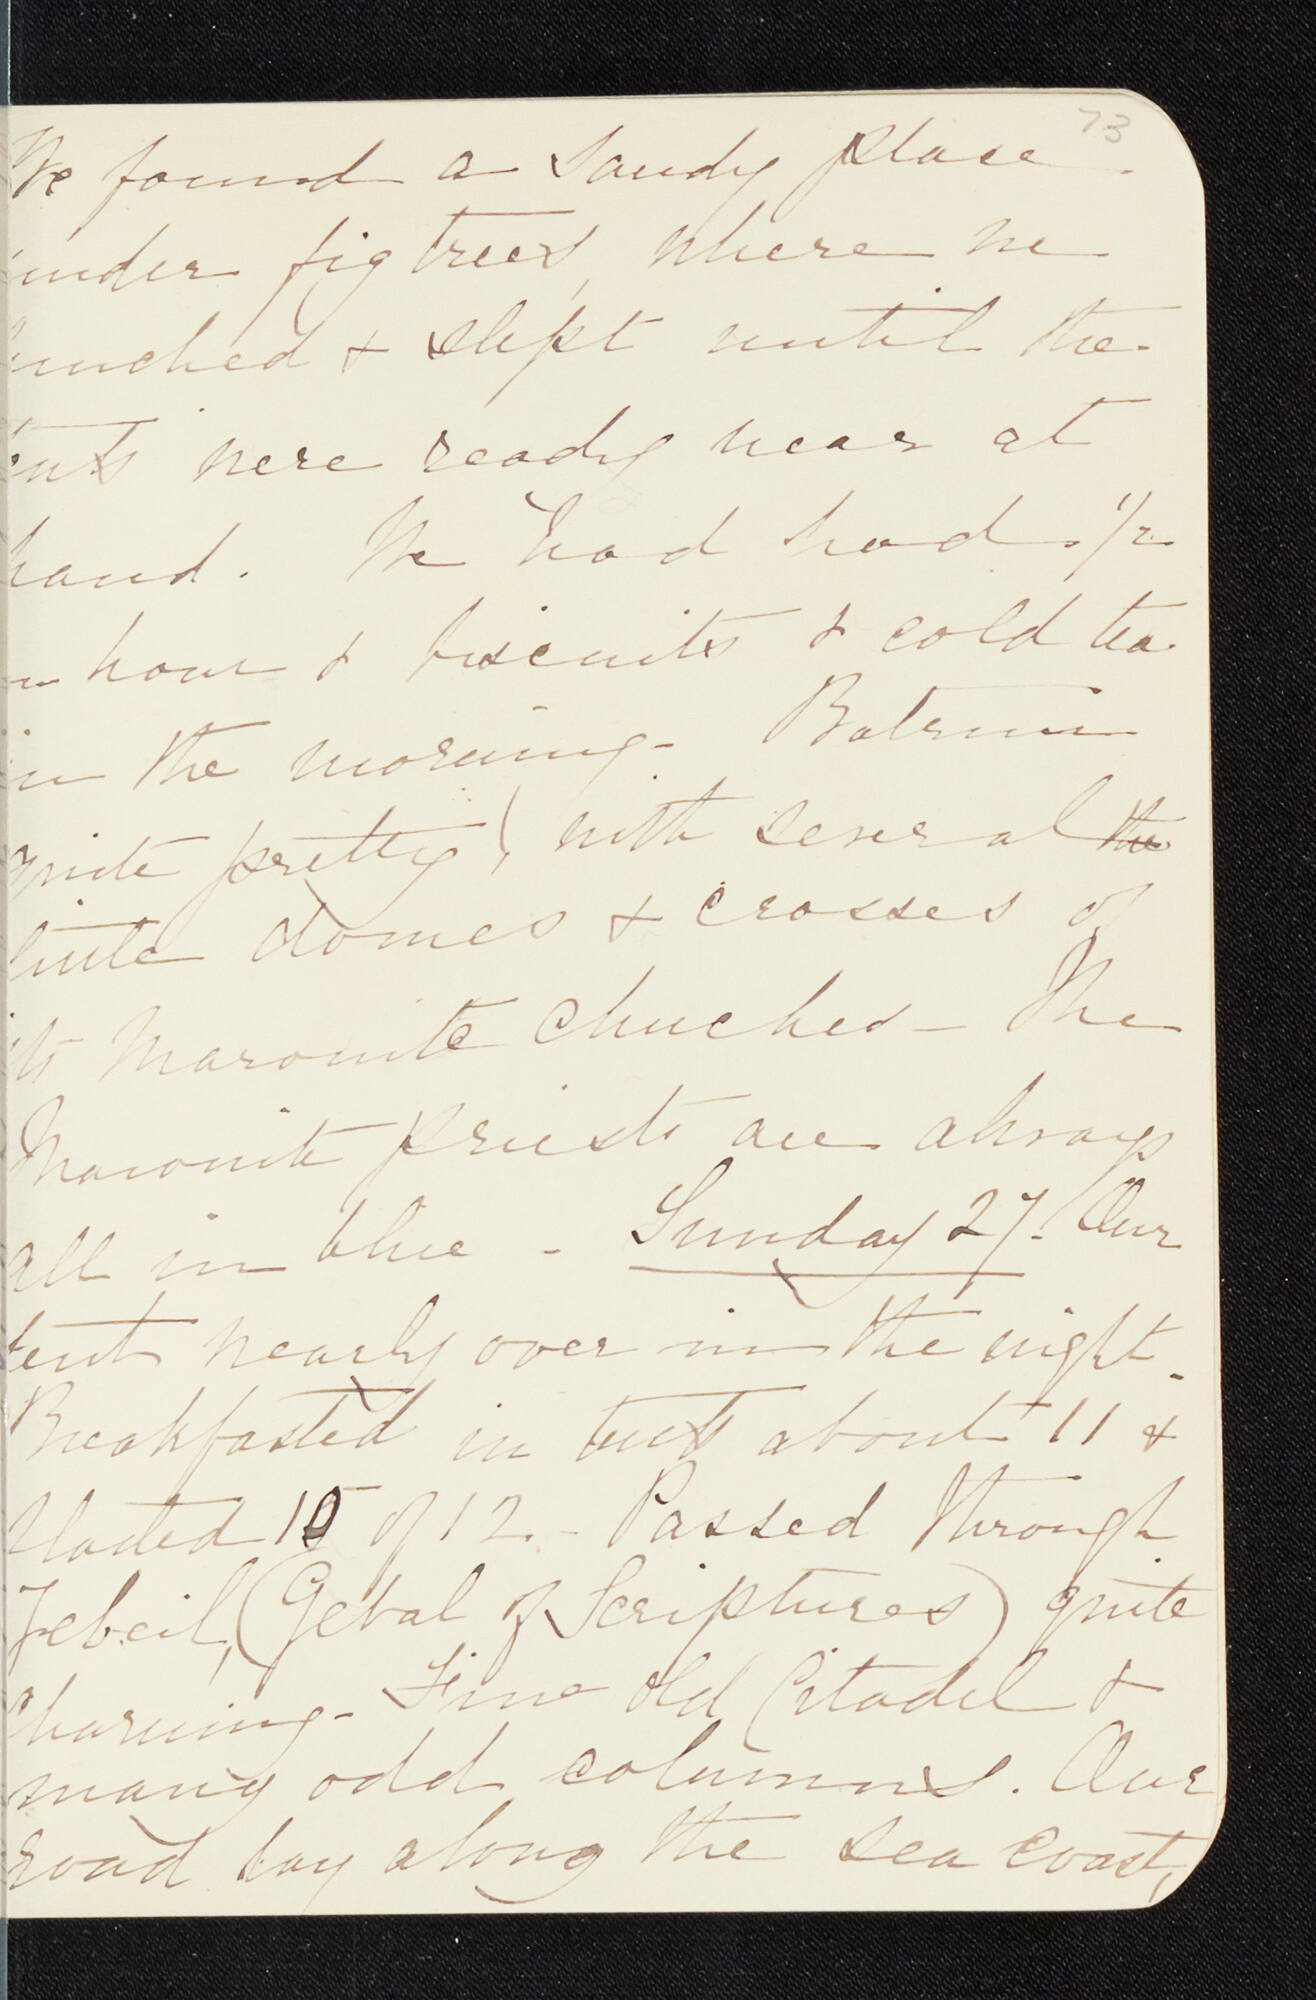 73
We found a sandy place
under fig trees, where we
lunched & slept until the
tents were ready near at
hand. We had had 1/2
an hour & biscuits & cold tea
in the morning - Batrun
quite pretty, with several the
little domes & crosses of
its Maronite Chuches - The
Maronite priests are always
all in blue - Sunday 27. Our
tent nearly over in the night.
Breakfasted in tents about 11 &
started 15 of 12. - Passed through
Jebeil, (Gebal of Scriptures) quite
charming - Fine old Citadel &
many odd columns. Our
road lay along the sea coast,